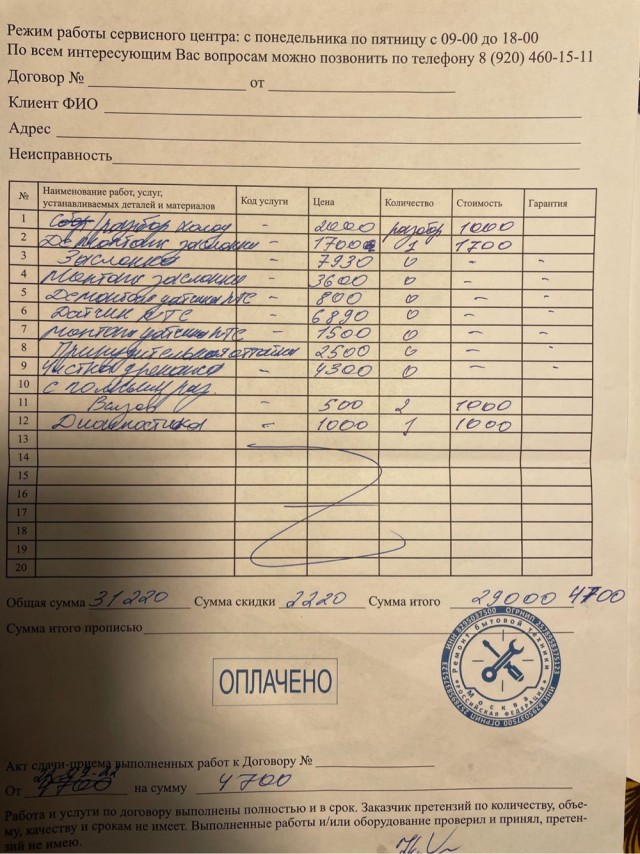 Режим работы сервисного центра: с понедельника по пятницу с 09-00 до 18-00
По всем интересующим Вас вопросам можно позвонить по телефону 8 (920) 460-15-11
Договор № от
Клиент ФИО
Адрес
Неисправность
№ Наименование работ, услуг, устанавливаемых деталей и материалов Код услуги Цена Количество Стоимость Гарантия
1 разбор холод - 2000 разбор 1000
2 Демонтаж заслонки - 1700 1 1700
3 Заслонка - 7930 0 - -
4 Монтаж заслонки - 3600 0 - -
5 Демонтаж датчика NTC - 800 0 - -
6 Датчик NTC - 6890 0 - -
7 Монтаж датчика NTC - 1500 0 - -
8 Принудительная оттайка 2500 0 - -
9 Чистка дренажа - 4300 0 - -
10 с полным раз.
11 Вызов - 500 2 1000
12 Диагностика - 1000 1 1000
13
14
15
16
17
18
19
20
Общая сумма 31220 Сумма скидки 2220 Сумма итого 29000 4700
Сумма итого прописью
ОПЛАЧЕНО
Ремонт бытовой техники
Москва
РОССИЙСКАЯ ФЕДЕРАЦИЯ
Акт сдачи-приема выполненных работ к Договору №
От 4700 на сумму 4700
Работа и услуги по договору выполнены полностью и в срок. Заказчик претензий по количеству, объе-
му, качеству и срокам не имеет. Выполненные работы и/или оборудование проверил и принял, претен-
зий не имею.